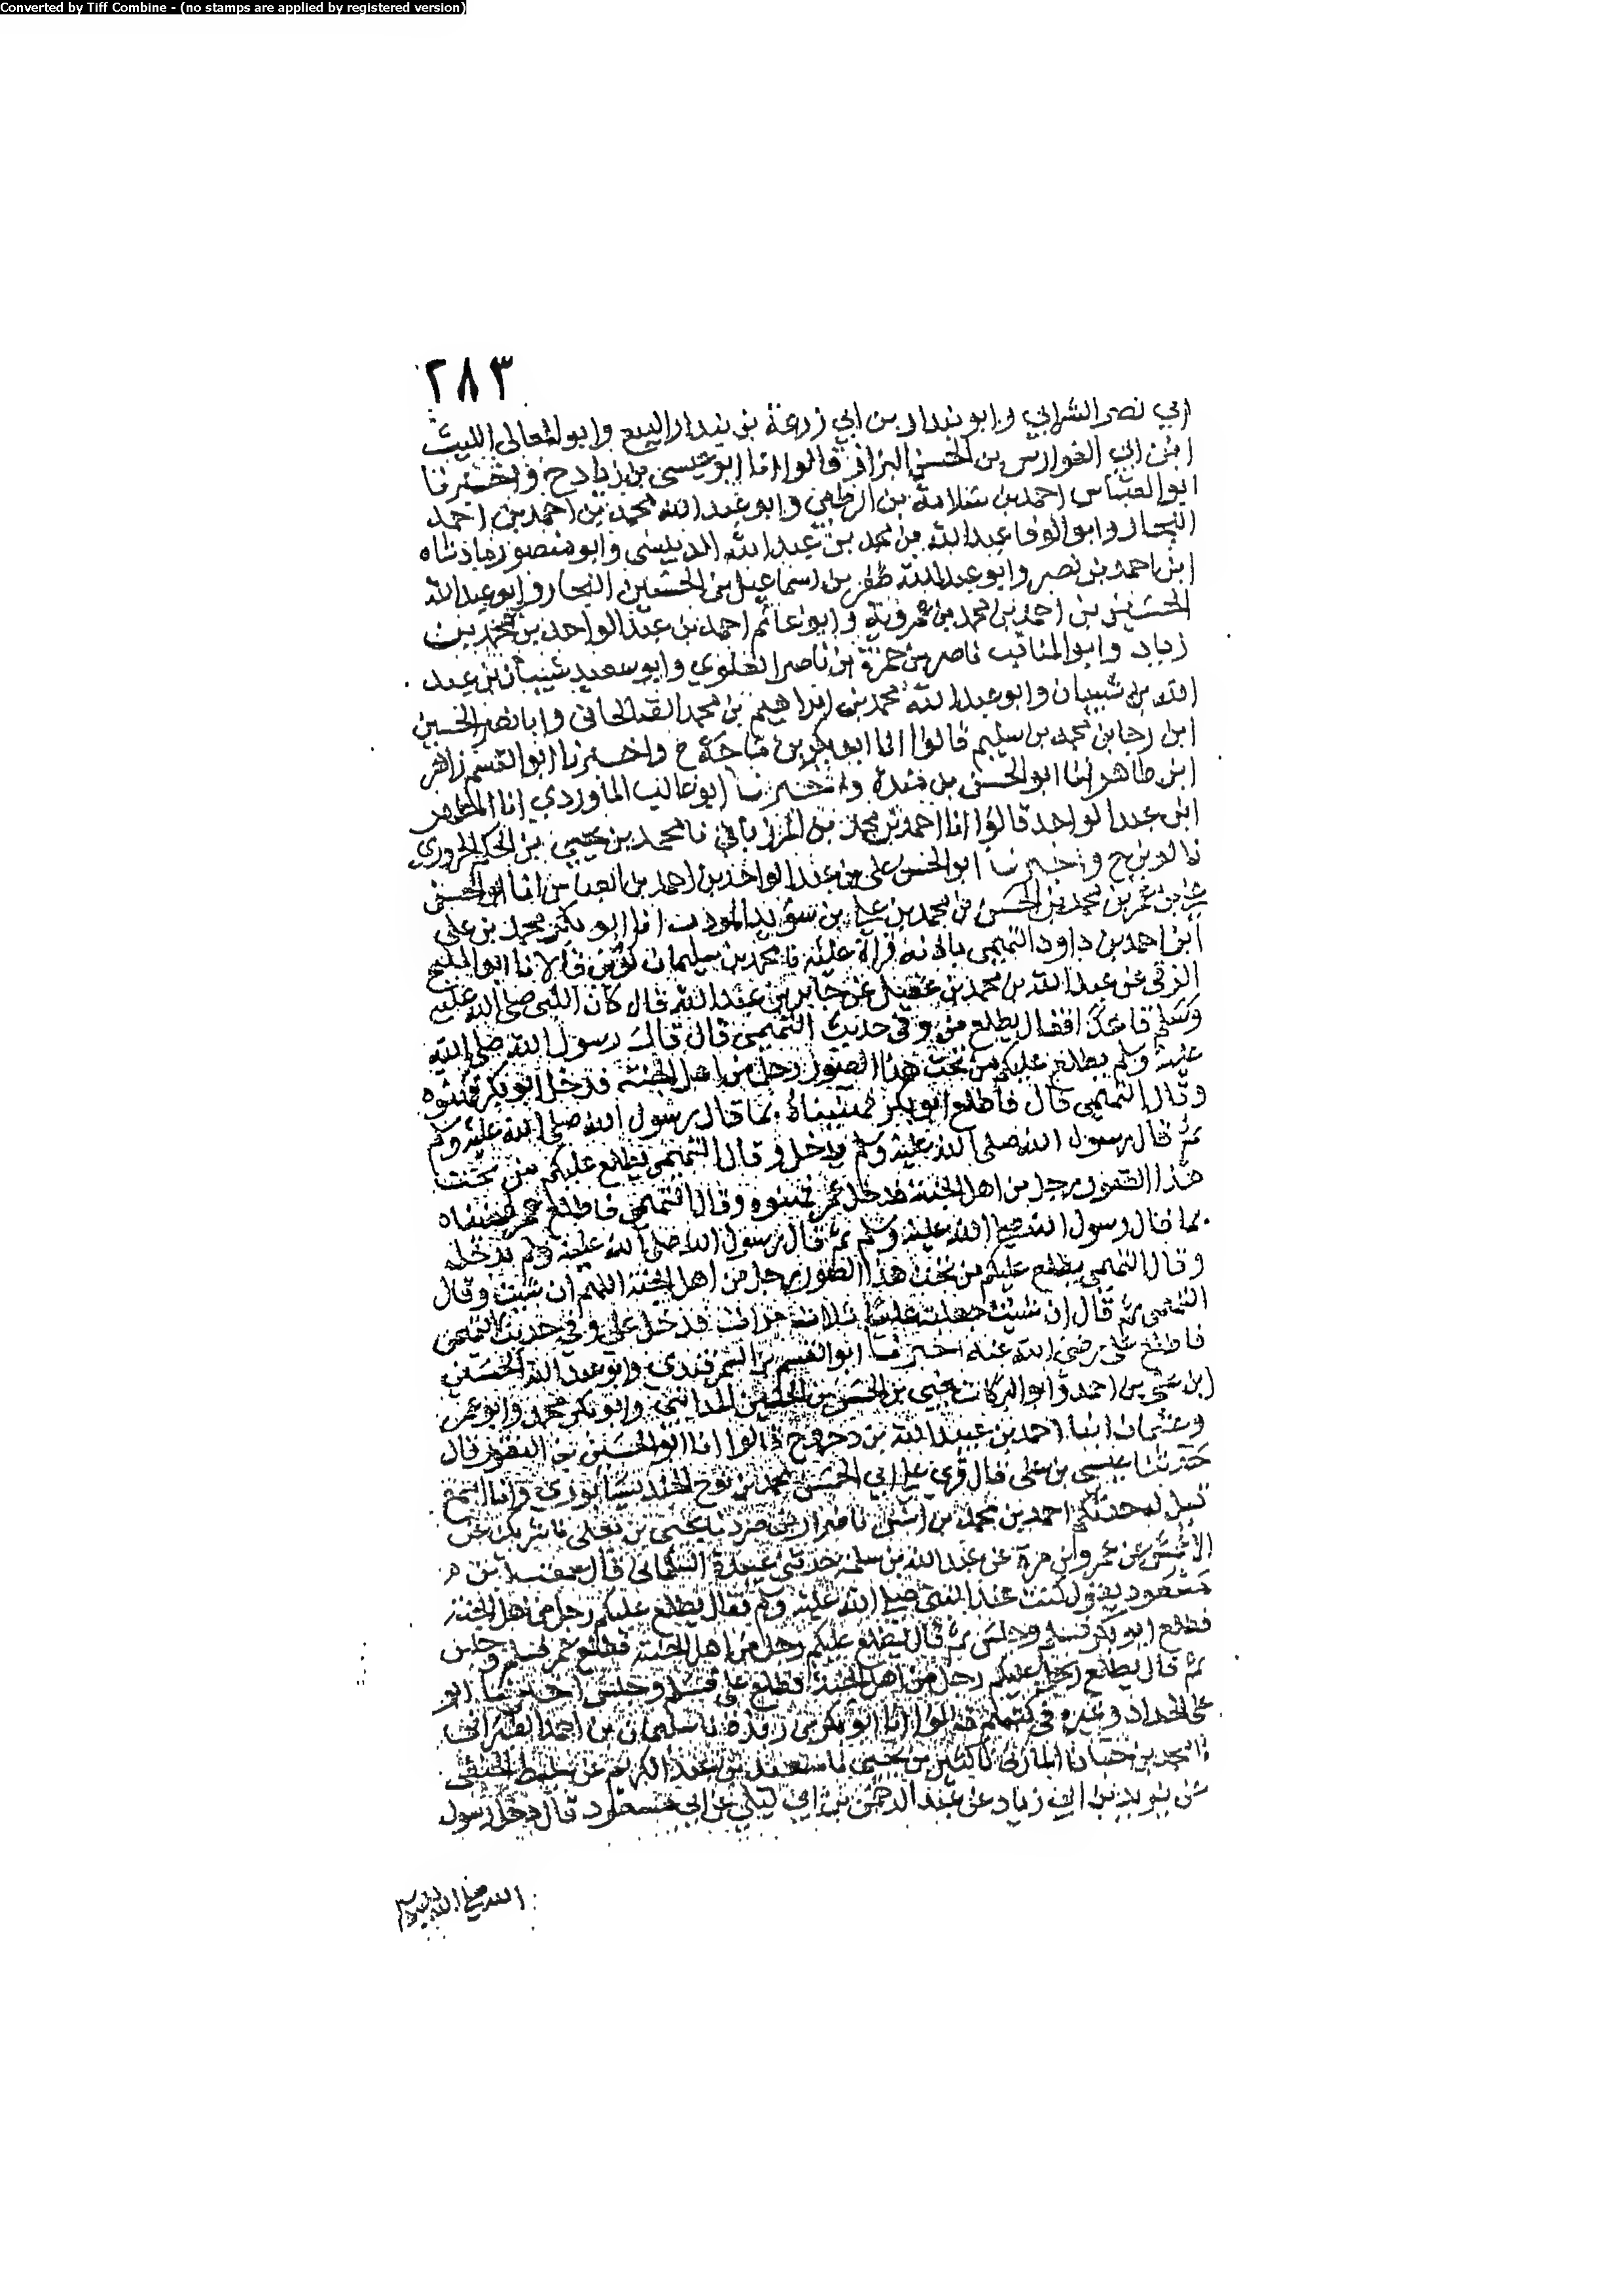 Converted by Tiff Combine - (no stamps are applied by registered version)
٢٨٣
ابي نصر الشرابي وابو بندار بن ابي زرعة بن بندار البيع وابو المعالي الليث
ابن ابي الفوارس بن الحسن البزاز قالوا انا ابو عيسى بن زياد ح واخبرنا
ابو العباس احمد بن سلامة بن الرطبي وابو عبد الله محمد بن احمد بن احمد
النجار وابو الوفا عبد الله بن محمد بن عبد الله الدبيسي وابو منصور فاذشاه
ابن احمد بن نصر وابو عبد الله ظفر بن اسماعيل بن الحسين النجار وابو عبد الله
الحسين بن احمد بن محمد بن عمرويه وابو غانم احمد بن عبد الواحد بن محمد بن
زياد وابو المناقب ناصر بن حمزة بن ناصر العلوي وابو سعيد شيبان بن عبد
الله بن شيبان وابو عبد الله محمد بن ابراهيم بن محمد الصالحاني وابا نصر الحسين
ابن رجا بن محمد بن سليم قالوا انا ابو بكر بن ماجة ح واخبرنا ابو القسم زاهر
ابن طاهر انا ابو الحسن بن مندة واخبرنا ابو غالب الماوردي انا المطهر
ابن عبد الواحد قالوا انا احمد بن محمد بن المرزباني نا محمد بن يحيى بن الحكم الحزوري
نا لوين ح واخبرنا ابو الحسن علي بن عبد الواحد بن احمد بن العباس انا ابو الحسن
علي بن عمر بن محمد بن الحسن نا محمد بن علي بن سويد المودب انا ابو بكر محمد بن علي
ابن احمد بن داود التميمي باذنه قراة عليه نا محمد بن سليمان لوين قالا نا ابو المليح
الرقي عن عبد الله بن محمد بن عقيل عن جابر بن عبد الله قال كان النبي صلى الله عليه
وسلم قاعدا فقال يطلع من وفي حديث التميمي قال قال رسول الله صلى الله
عليه وسلم يطلع عليكم من تحت هذا الصور رجل من اهل الجنة فدخل ابو بكر فهنوه
وقال التميمي قال فاطلع ابو بكر فهنيناه بما قال رسول الله صلى الله عليه وسلم
ثم قال رسول الله صلى الله عليه وسلم يدخل وقال التميمي يطلع عليكم من تحت
هذا الصور رجل من اهل الجنة فدخل عمر فهنوه وقال التميمي فاطلع عمر فهنيناه
بما قال رسول الله صلى الله عليه وسلم ثم قال رسول الله صلى الله عليه وسلم يدخل
وقال التميمي يطلع عليكم من تحت هذا الصور رجل من اهل الجنة اللهم ان شيت وقال
التميمي ثم قال ان شيت جعلته عليا ثلاث مرات فدخل علي وفي حديث التميمي
فاطلع علي رضي الله عنه اخبرنا ابو القسم بن السمرقندي وابو عبد الله الحسين
ابن علي بن احمد وابو البركات يحيى بن الحسن بن الحسين المدائني وابو بكر محمد وابو عمر
وعثمان ابنا احمد بن عبيد الله بن دحروج قالوا انا ابو الحسين بن النقور قال
حدثنا عيسى بن علي قال قري علي ابي الحسن محمد بن نوح الجنديسابوري وانا اسمع
قيل له حدثكم احمد بن محمد بن انس نا ضرار بن صرد نا يحيى بن يعلى نا شريك عن
الاعمش عن عمرو بن مرة عن عبد الله بن سلمة حدثني عبيدة السلماني قال سمعت ابن
مسعود يقول كنت عند النبي صلى الله عليه وسلم فقال يطلع عليكم رجل من اهل الجنة
فطلع ابو بكر فسلم وجلس ثم قال يطلع عليكم رجل من اهل الجنة فطلع عمر فسلم وجلس
ثم قال يطلع عليكم رجل من اهل الجنة فطلع علي فسلم وجلس اخبرنا ابو
علي الحداد وغيره في كتبهم قالوا انا ابو بكر بن ريذة نا سليمان بن احمد الطبراني
نا محمد بن حيان المازني نا كثير بن يحيى نا سعيد بن عبد الكريم عن سليط الحنفي
عن يزيد بن ابي زياد عن عبد الرحمن بن ابي ليلى عن ابي مسعود قال دخل رسول
الله صلى الله عليه وسلم